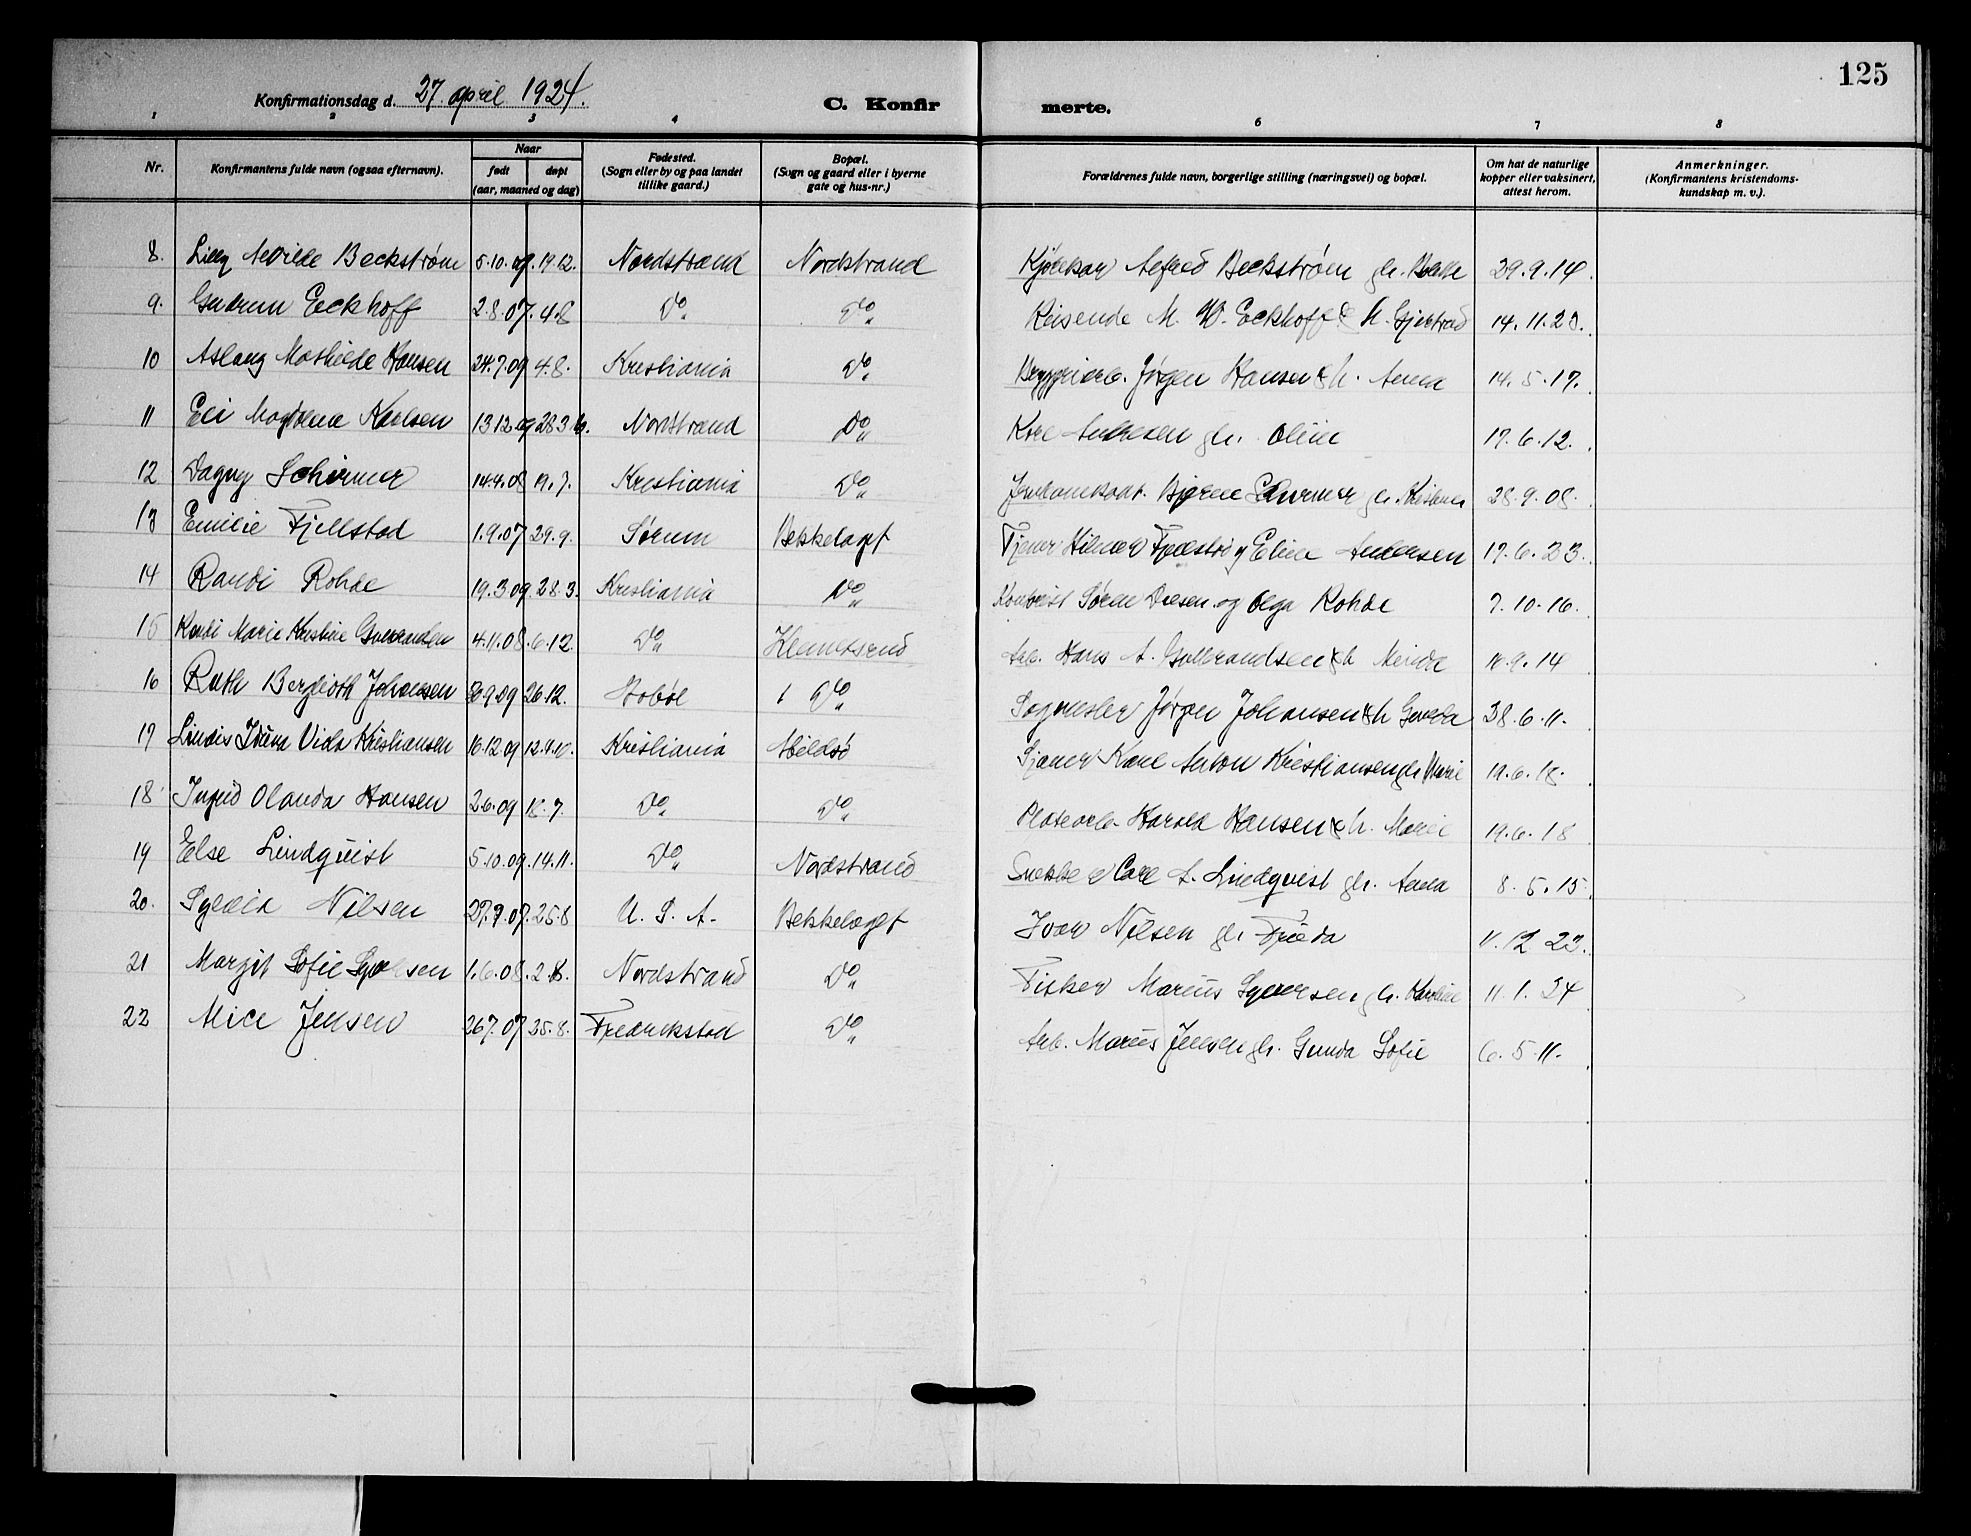 125
Konfirmationsdag d. 27. april 1924.
C. Konfirmerte.
1 2 3 4 6 7 8
Nr.
Konfirmantens fulde navn (ogsaa efternavn).
Naar
født døpt
(aar, maaned og dag)
Fødested.
(Sogn eller by og paa landet
tillike gaard.)
Bopæl.
(Sogn og gaard eller i byerne
gate og hus-nr.)
Forældrenes fulde navn, borgerlige stilling (næringsvei) og bopæl.
Om hat de naturlige
kopper eller vaksinert,
attest herom.
Anmerkninger.
(Konfirmantens kristendoms-
kundskap m. v.).
8. Lilly Beckstrøm 5.10.09. 19.12. Nordstrand Nordstrand Alfred Beckstrøm gh. 29.9.14.
9. Gudrun Eckhoff 2.8.07. 4.8 Do „ Do „ Reisende M. W. Eckhoff & h. 14.11.23.
10 Aslaug Mathilde Hansen 24.7.09 4.8. Kristiania Do „ Jørgen Hansen & h. Anna 14.5.17.
11 Eli Magdalena Karlsen 13.12.09 28.3.10. Nordstrand Do „ Karl Andresen gh. Oline 17.6.12.
12 Dagny Schirmer 14.4.08 19.7. Kristiania Do „ Bjarne Schirmer gh. 28.9.08.
13 Emilie Fjellstad 1.9.07 29.9. Sørum Bekkelaget Tjener Hilmar Fjellstad og Andersen 17.6.23.
14 Randi Rohde 19.3.09. 28.3. Kristiania Do „ Kontorist Søren og Olga Rohde 7.10.16.
15 Randi Marie Kristine Gulbrandsen 4.11.08. 6.12. Do „ Klemetsrud Arb. Hans A. Gulbrandsen & h 9.14
16 Ruth Bergljoth Johansen 9.09 26.12. Hobøl Do „ Jørgen Johansen & h 6.11.
17 Lindis Iduna Vida Kristiansen 16.12.09 Kristiania Abildsø Karl Anton Kristiansen gh. Marie 19.6.18.
18 Ingrid Olanda Hansen 2.6.09 18.7. Do „ Do „ Platearb. Harald Hansen & h. Marie 19.6.18
19 Else Lindquist 5.10.09. 14.11. Do „ Nordstrand Snekker Carl A. Lindquist gh. Anna 8.5.15.
20. Nilsen 27.7.07. 25.8 U. S. A. Bekkelaget Ivar Nilsen gh. Frida 11.12.22.
21 Margit Sofie Syversen 1.6.08. 2.8. Nordstrand Do „ Fisker Marius Syversen gh. Karoline 11.1.24
22 Alice Jensen 26.7.07 25.8. Fredrikstad Do „ Arb. Marius Jensen gh. Gunda Sofie 6.5.11.